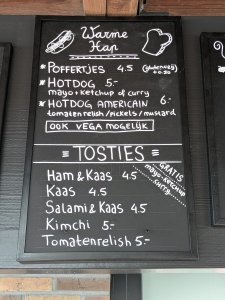 Warme
Hap
* POFFERTJES 4.5 (glutenvrij +0.50)
* HOTDOG 5.-
mayo + ketchup of curry
* HOTDOG AMERICAIN 6.-
tomatenrelish / pickels / mustard
OOK VEGA MOGELIJK
= TOSTIES =
Ham & Kaas 4.5
GRATIS
mayo - ketchup
curry
Kaas 4.5
Salami & Kaas 4.5
Kimchi 5.-
Tomatenrelish 5.-